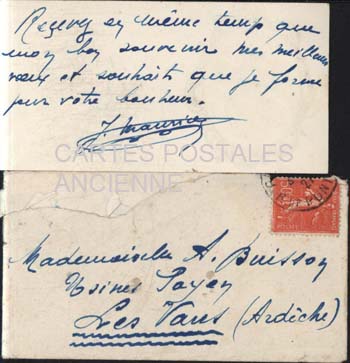 Recevez en même temp que
mon bon souvenir mes meilleurs
vœux et souhaits que je forme
pour votre bonheur.
J. Maurice
CARTES POSTALES
ANCIENNE
Mademoiselle A. Buisson
Usines Payen
Les Vans (Ardèche)